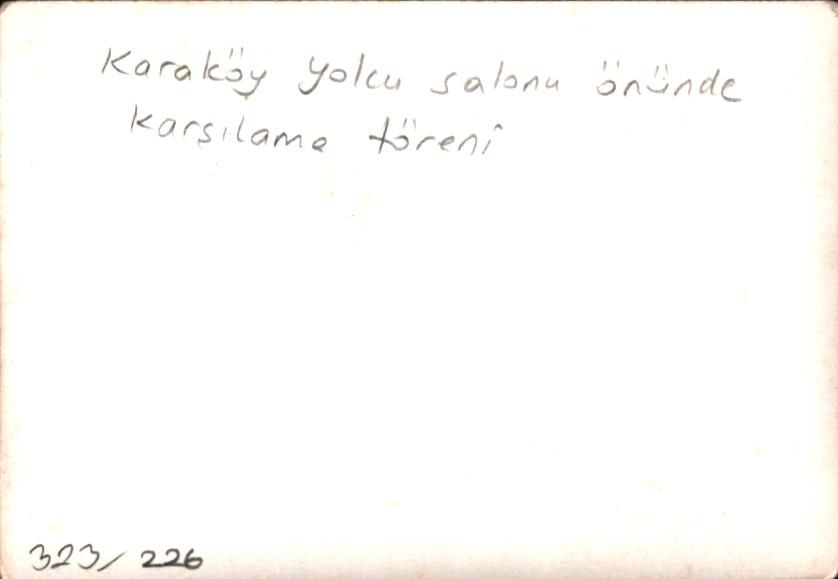 Karaköy Yolcu salonu önünde
karşılama töreni
323/226